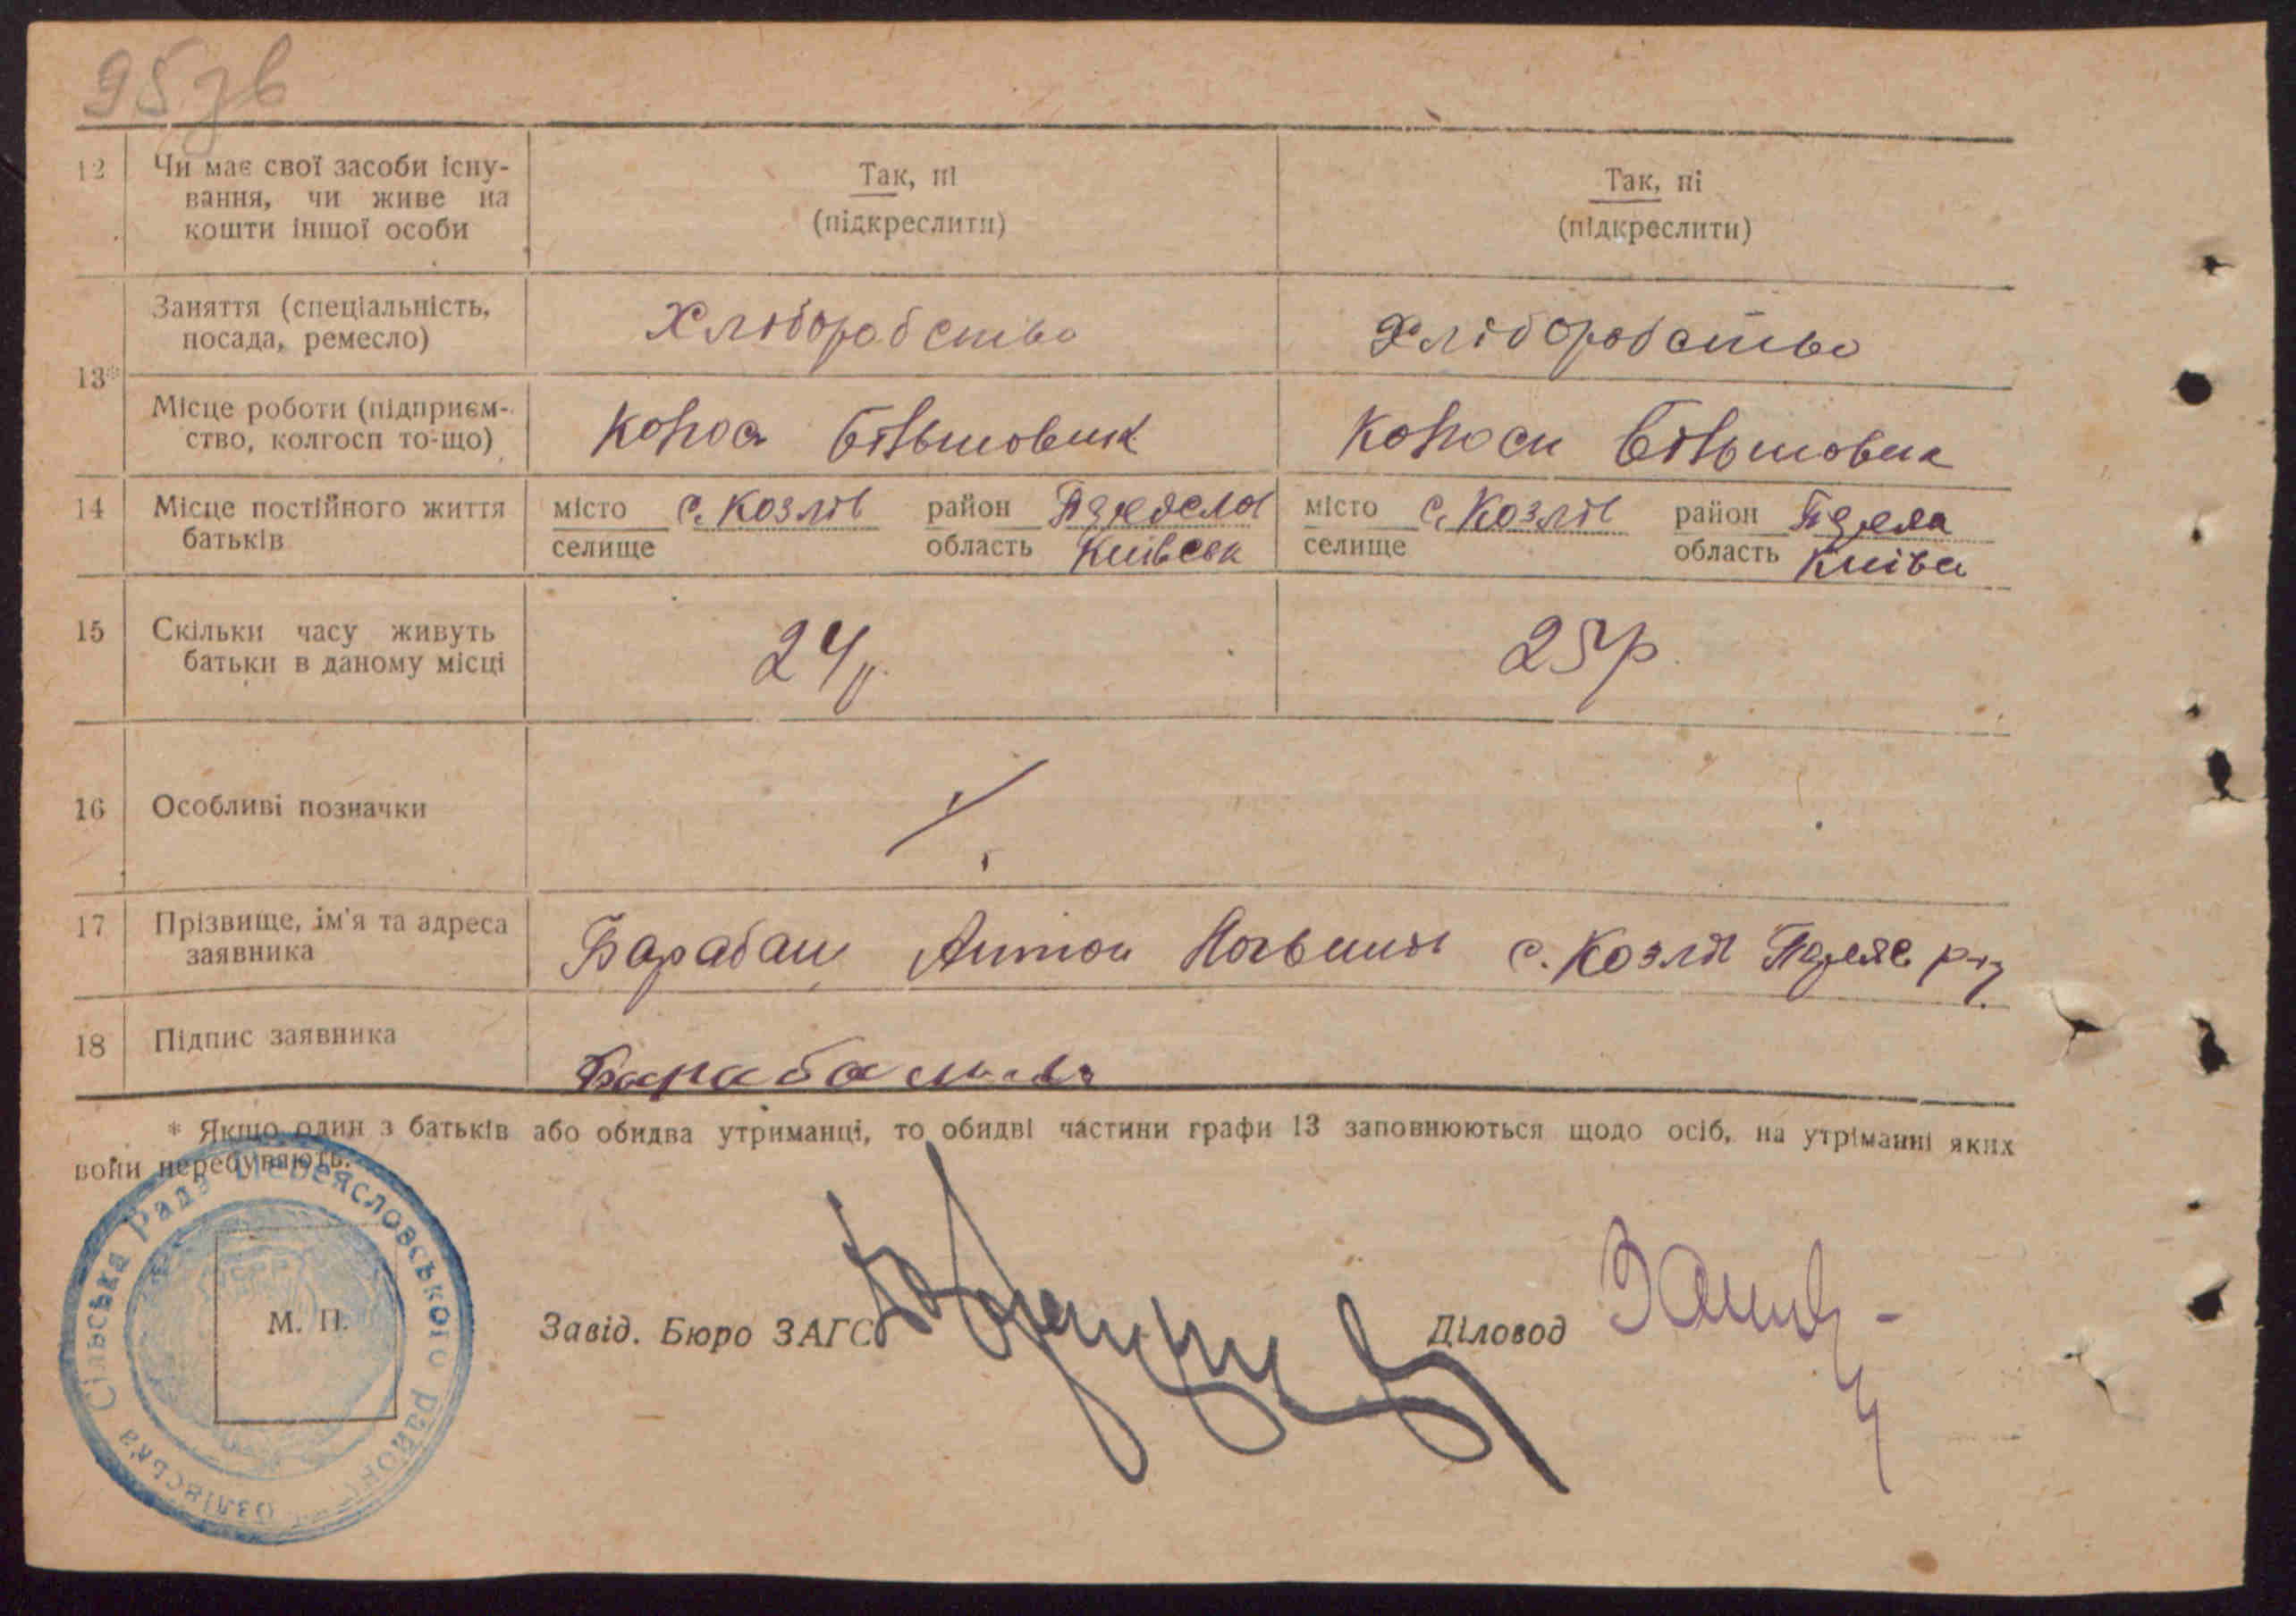 95зв
12 Чи має свої засоби існу-
вання, чи живе на
кошти іншої особи
Так, ні
(підкреслити)
Так, ні
(підкреслити)
13*
Заняття (спеціальність,
посада, ремесло)
Хліборобство
Хліборобство
Місце роботи (підприєм-
ство, колгосп то-що)
Більшовик
Більшовик
14 Місце постійного життя
батьків
місто с. Козлів район
селище область Київськ
місто с. Козлів район
селище область
15 Скільки часу живуть
батьки в даному місці
24р.
25р.
16 Особливі позначки
17 Прізвище, ім'я та адреса
заявника
Барабаш Антон с. Козлів
18 Підпис заявника
* Якщо один з батьків або обидва утриманці, то обидві частини графи 13 заповнюються щодо осіб, на утріманні яких
вони перебувають.
Сільська Рада Переясловського району
М. П.
Завід. Бюро ЗАГС
Діловод